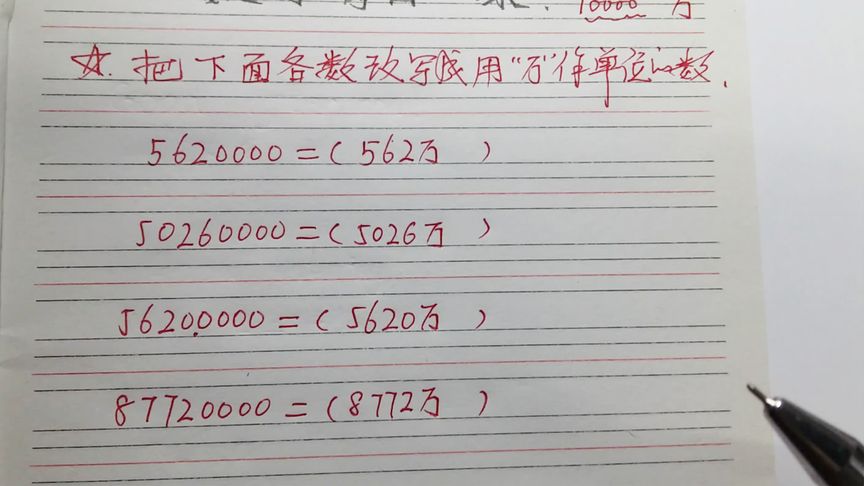 10000 万
☆. 把下面各数改写成用“万”作单位的数.
5620000=(562万 )
50260000=(5026万 )
5620.0000=(5620万 )
87720000=(8772万 )